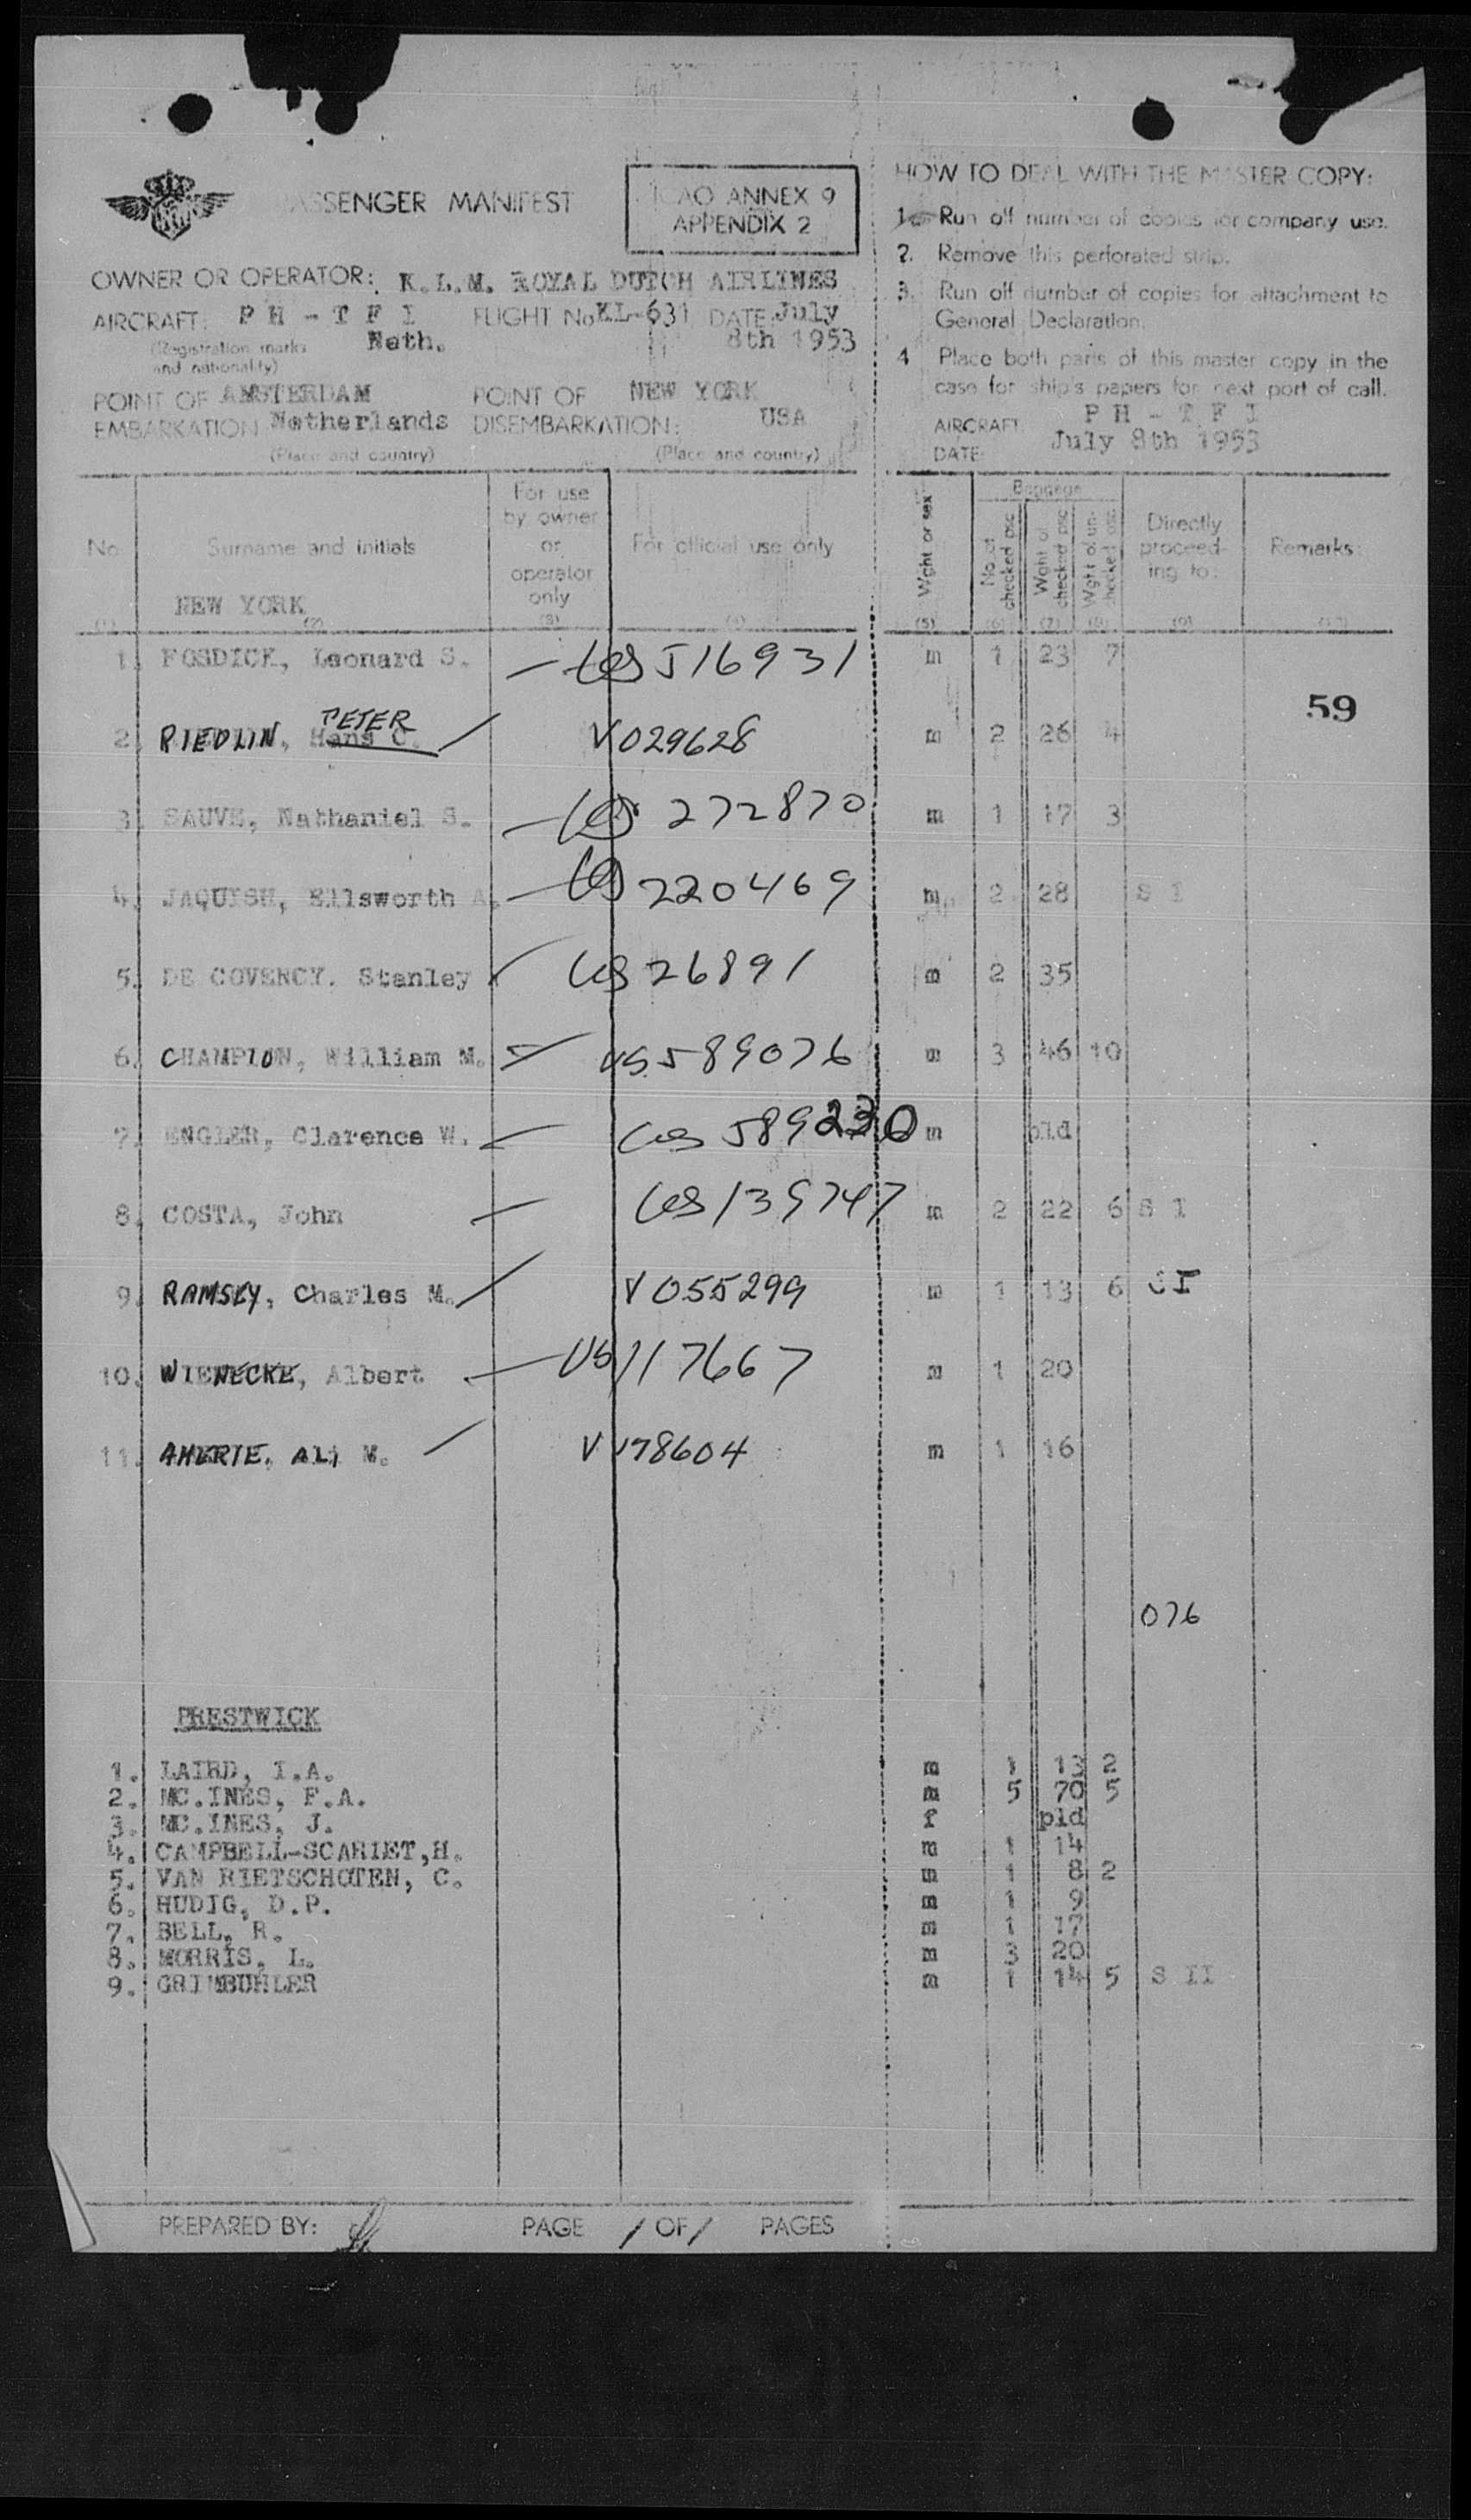 PASSENGER MANIFEST
ICAO ANNEX 9
APPENDIX 2
OWNER OR OPERATOR: K.L.M. ROYAL DUTCH AIRLINES
AIRCRAFT: P H - T F I FLIGHT No KL-631 DATE: July
(Registration marks and nationality) Neth. 8th 1953
POINT OF EMBARKATION: AMSTERDAM Netherlands POINT OF DISEMBARKATION: NEW YORK USA
(Place and country) (Place and country)
HOW TO DEAL WITH THE MASTER COPY:
1. Run off number of copies for company use.
2. Remove this perforated strip.
3. Run off number of copies for attachment to
General Declaration.
4 Place both parts of this master copy in the
case for ship's papers for next port of call.
AIRCRAFT P H - T F I
DATE: July 8th 1953
No Surname and initials For use by owner or operator only For official use only Wght or sex Baggage No. of checked psc Wght of checked psc Wght of un-checked psc Directly proceed-ing to: Remarks:
NEW YORK
(1) (2) (3) (4) (5) (6) (7) (8) (9) (10)
1. FOSDICK, Leonard S. US 516931 m 1 23 7
59
2. RIEDLIN, PETER Hans C. V 029628 m 2 26 4
3. SAUVE, Nathaniel S. US 272870 m 1 17 3
4. JAQUISH, Ellsworth A. US 220469 m 2 28 S I
5. DE COVENCY. Stanley US 26891 m 2 35
6. CHAMPION, William M. US 589076 m 3 46 10
7. ENGLER, Clarence W. US 589230 m pld
8. COSTA, John US 139747 m 2 22 6 S I
9. RAMSEY, Charles M. V 055299 m 1 13 6 SI
10. WIENECKE, Albert US 117667 m 1 20
11. AMERIE, ALI M. V 178604 m 1 16
076
PRESTWICK
1. LAIRD, I.A. m 1 13 2
2. MC.INES, F.A. m 5 70 5
3. MC.INES, J. f pld
4. CAMPBELL-SCARIET,H. m 1 14
5. VAN RIETSCHOTEN, C. m 1 8 2
6. HUDIG, D.P. m 1 9
7. BELL, R. m 1 17
8. MORRIS, L. m 3 20
9. GRIMBUHLER m 1 14 5 S II
PREPARED BY: PAGE 1 OF 1 PAGES